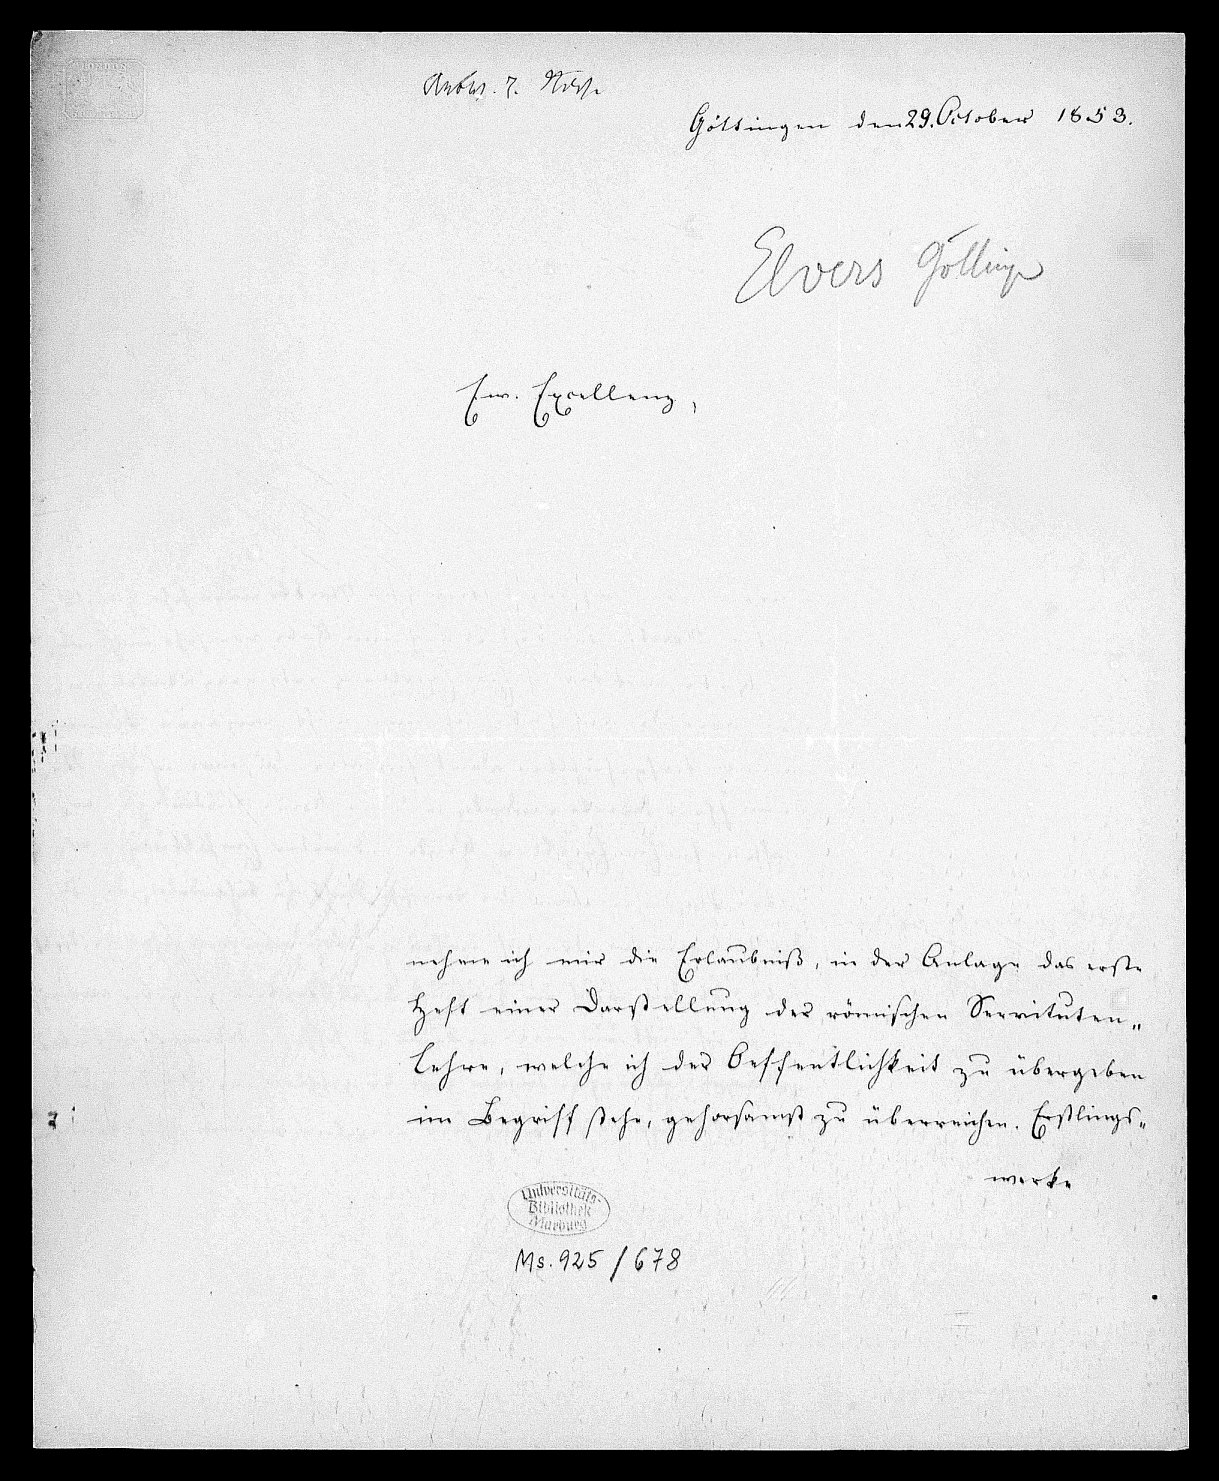 Göttingen den 29. October 1853.
Elvers Götting
Ew. Excellenz,
nehme ich mir die Erlaubniß, in der Anlage das erste
Heft einer Darstellung der römischen Servituten-
Lehre, welche ich der Oeffentlichkeit zu übergeben
im Begriff stehe, gehorsamst zu überreichen. Erstlings-
werke
Universitäts-
Bibliothek
Marburg
Ms. 925/678